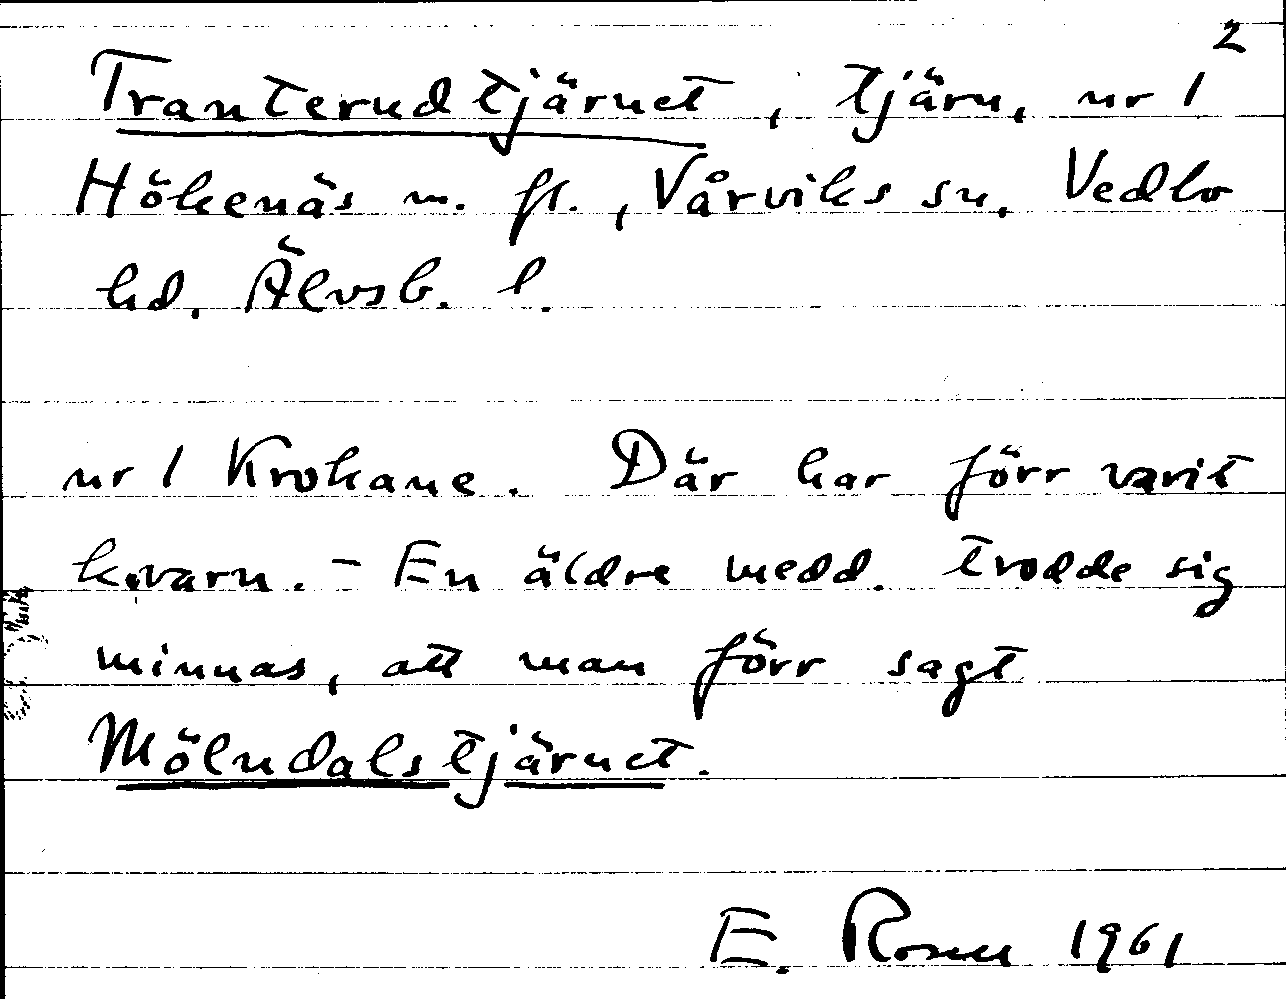 2
Tranterudtjärnet, tjärn, nr 1
Hökenäs m. fl., Vårviks sn. Vedbo
hd. Älvsb. l.
nr 1 Krokane. Där har förr varit
kvarn. - En äldre medd. trodde sig
minnas, att man förr sagt
Mölndalstjärnet.
E. Rosen 1961